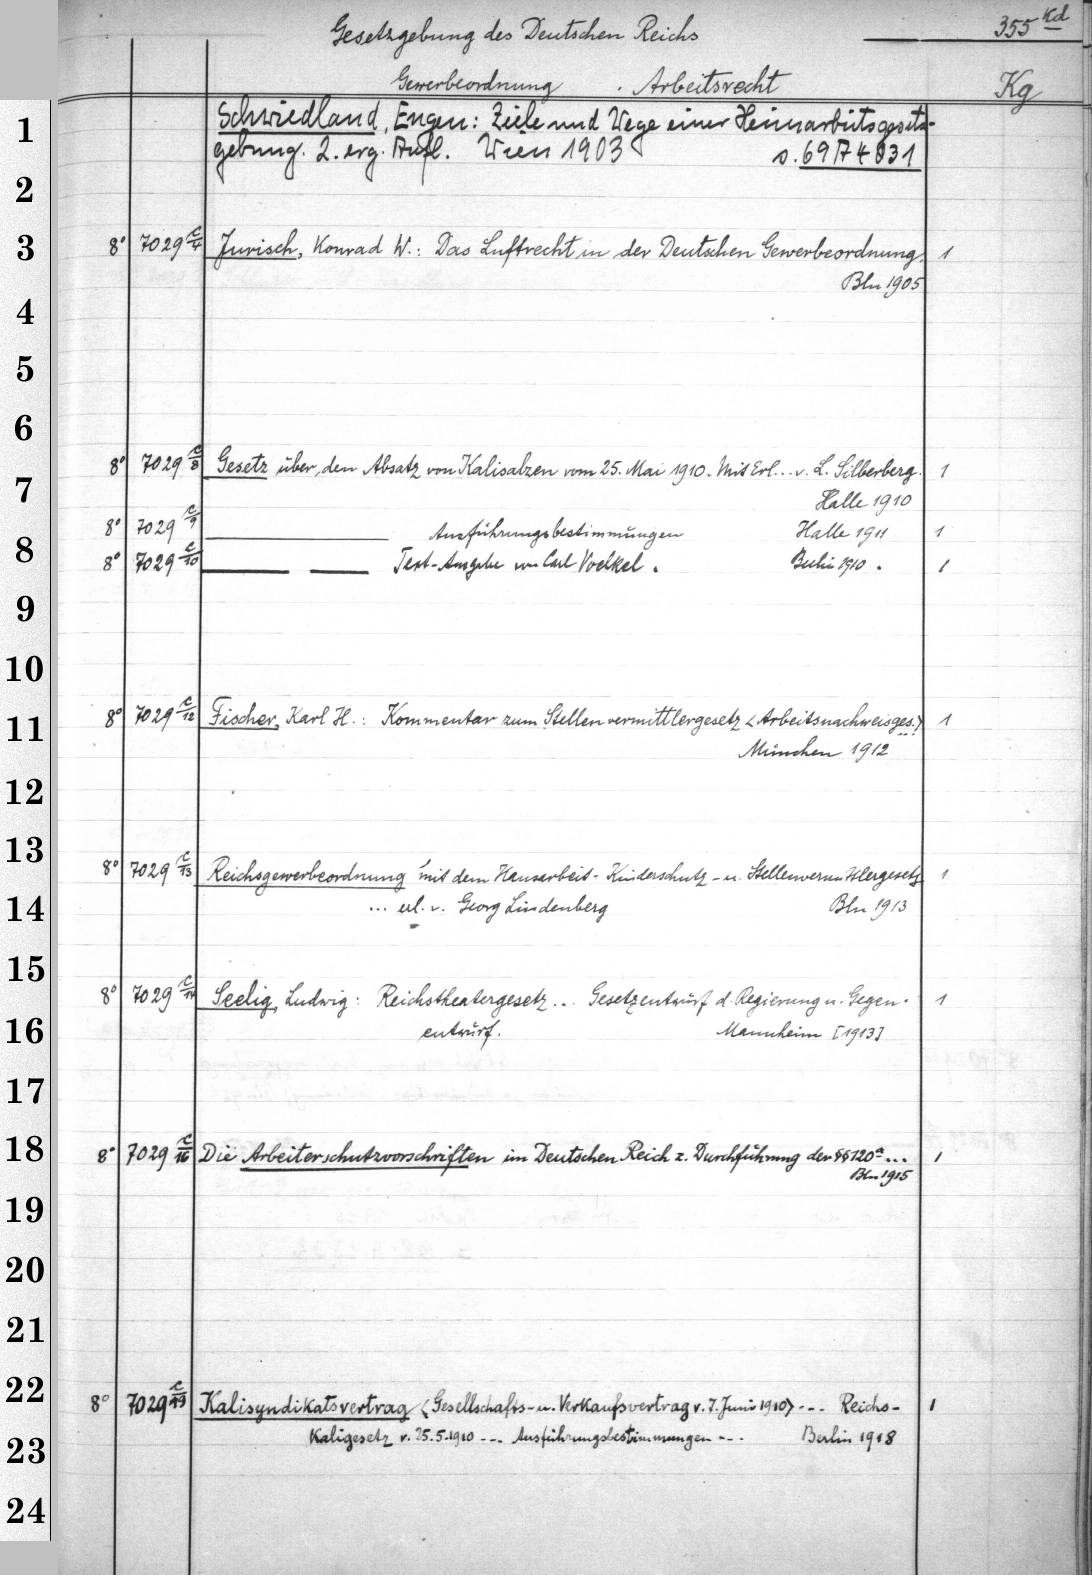 Gesetzgebung des Deutschen Reichs 355 Kd
Gewerbeordnung . Arbeitsrecht Kg
1 Schwiedland, Eugen: Ziele und Wege einer Heimarbeitsgesetz-
gebung. 2. erg. Aufl. Wien 1903 s. 69 A 4831
2
3 8° 7029 c/4 Jurisch, Konrad W.: Das Luftrecht in der Deutschen Gewerbeordnung. 1
Bln 1905
4
5
6
8° 7029 c/8 Gesetz über den Absatz von Kalisalzen vom 25. Mai 1910. Mit Erl... v. L. Silberberg. 1
7 Halle 1910
8° 7029 c/9 Ausführungsbestimmungen Halle 1911 1
8 8° 7029 c/10 Text-Ausgabe von Carl Voelkel. Berlin 1910. 1
9
10
11 8° 7029 c/12 Fischer, Karl H.: Kommentar zum Stellenvermittlergesetz <Arbeitsnachweisges.> 1
München 1912
12
13 8° 7029 c/13 Reichsgewerbeordnung mit dem Hausarbeit- Kinderschutz- u. Stellenvermittlergesetz 1
14 ... erl. v. Georg Lindenberg Bln 1913
15 8° 7029 c/14 Seelig, Ludwig: Reichstheatergesetz... Gesetzentwurf d. Regierung u. Gegen- 1
16 entwurf. Mannheim [1913]
17
18 8° 7029 c/16 Die Arbeiterschutzvorschriften im Deutschen Reich z. Durchführung der §§ 120a... 1
Bln 1915
19
20
21
22 8° 7029 c/19 Kalisyndikatsvertrag <Gesellschafts- u. Verkaufsvertrag v. 7. Juni 1910> --- Reichs- 1
23 Kaligesetz v. 25.5.1910 --- Ausführungsbestimmungen --- Berlin 1918
24